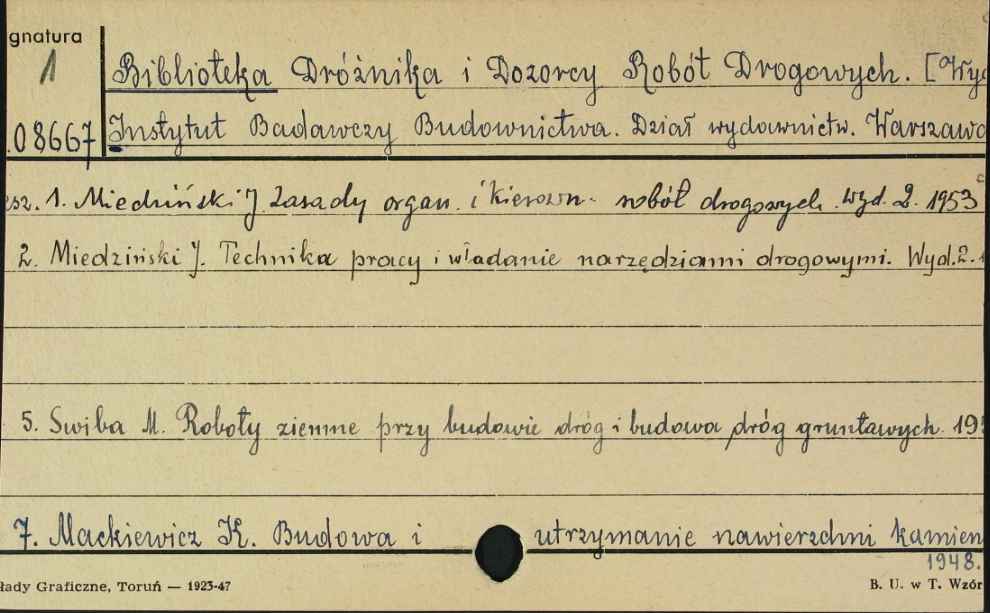 gnatura
1
08667
Biblioteka Dróżnika i Dozorcy Robót Drogowych. [Wyd
Instytut Badawczy Budownictwa. Dział wydawnictw. Warszawa
esz. 1. Miedziński J. Zasady organ. i kierown. robót drogowych. Wyd. 2. 1953
2. Miedziński J. Technika pracy i władanie narzędziami drogowymi. Wyd. 2. 1
5. Swiba M. Roboty ziemne przy budowie dróg i budowa dróg gruntawych. 195
7. Mackiewicz K. Budowa i utrzymanie nawierzchni kamien
1948.
łady Graficzne, Toruń — 1923-47
B. U. w T. Wzór